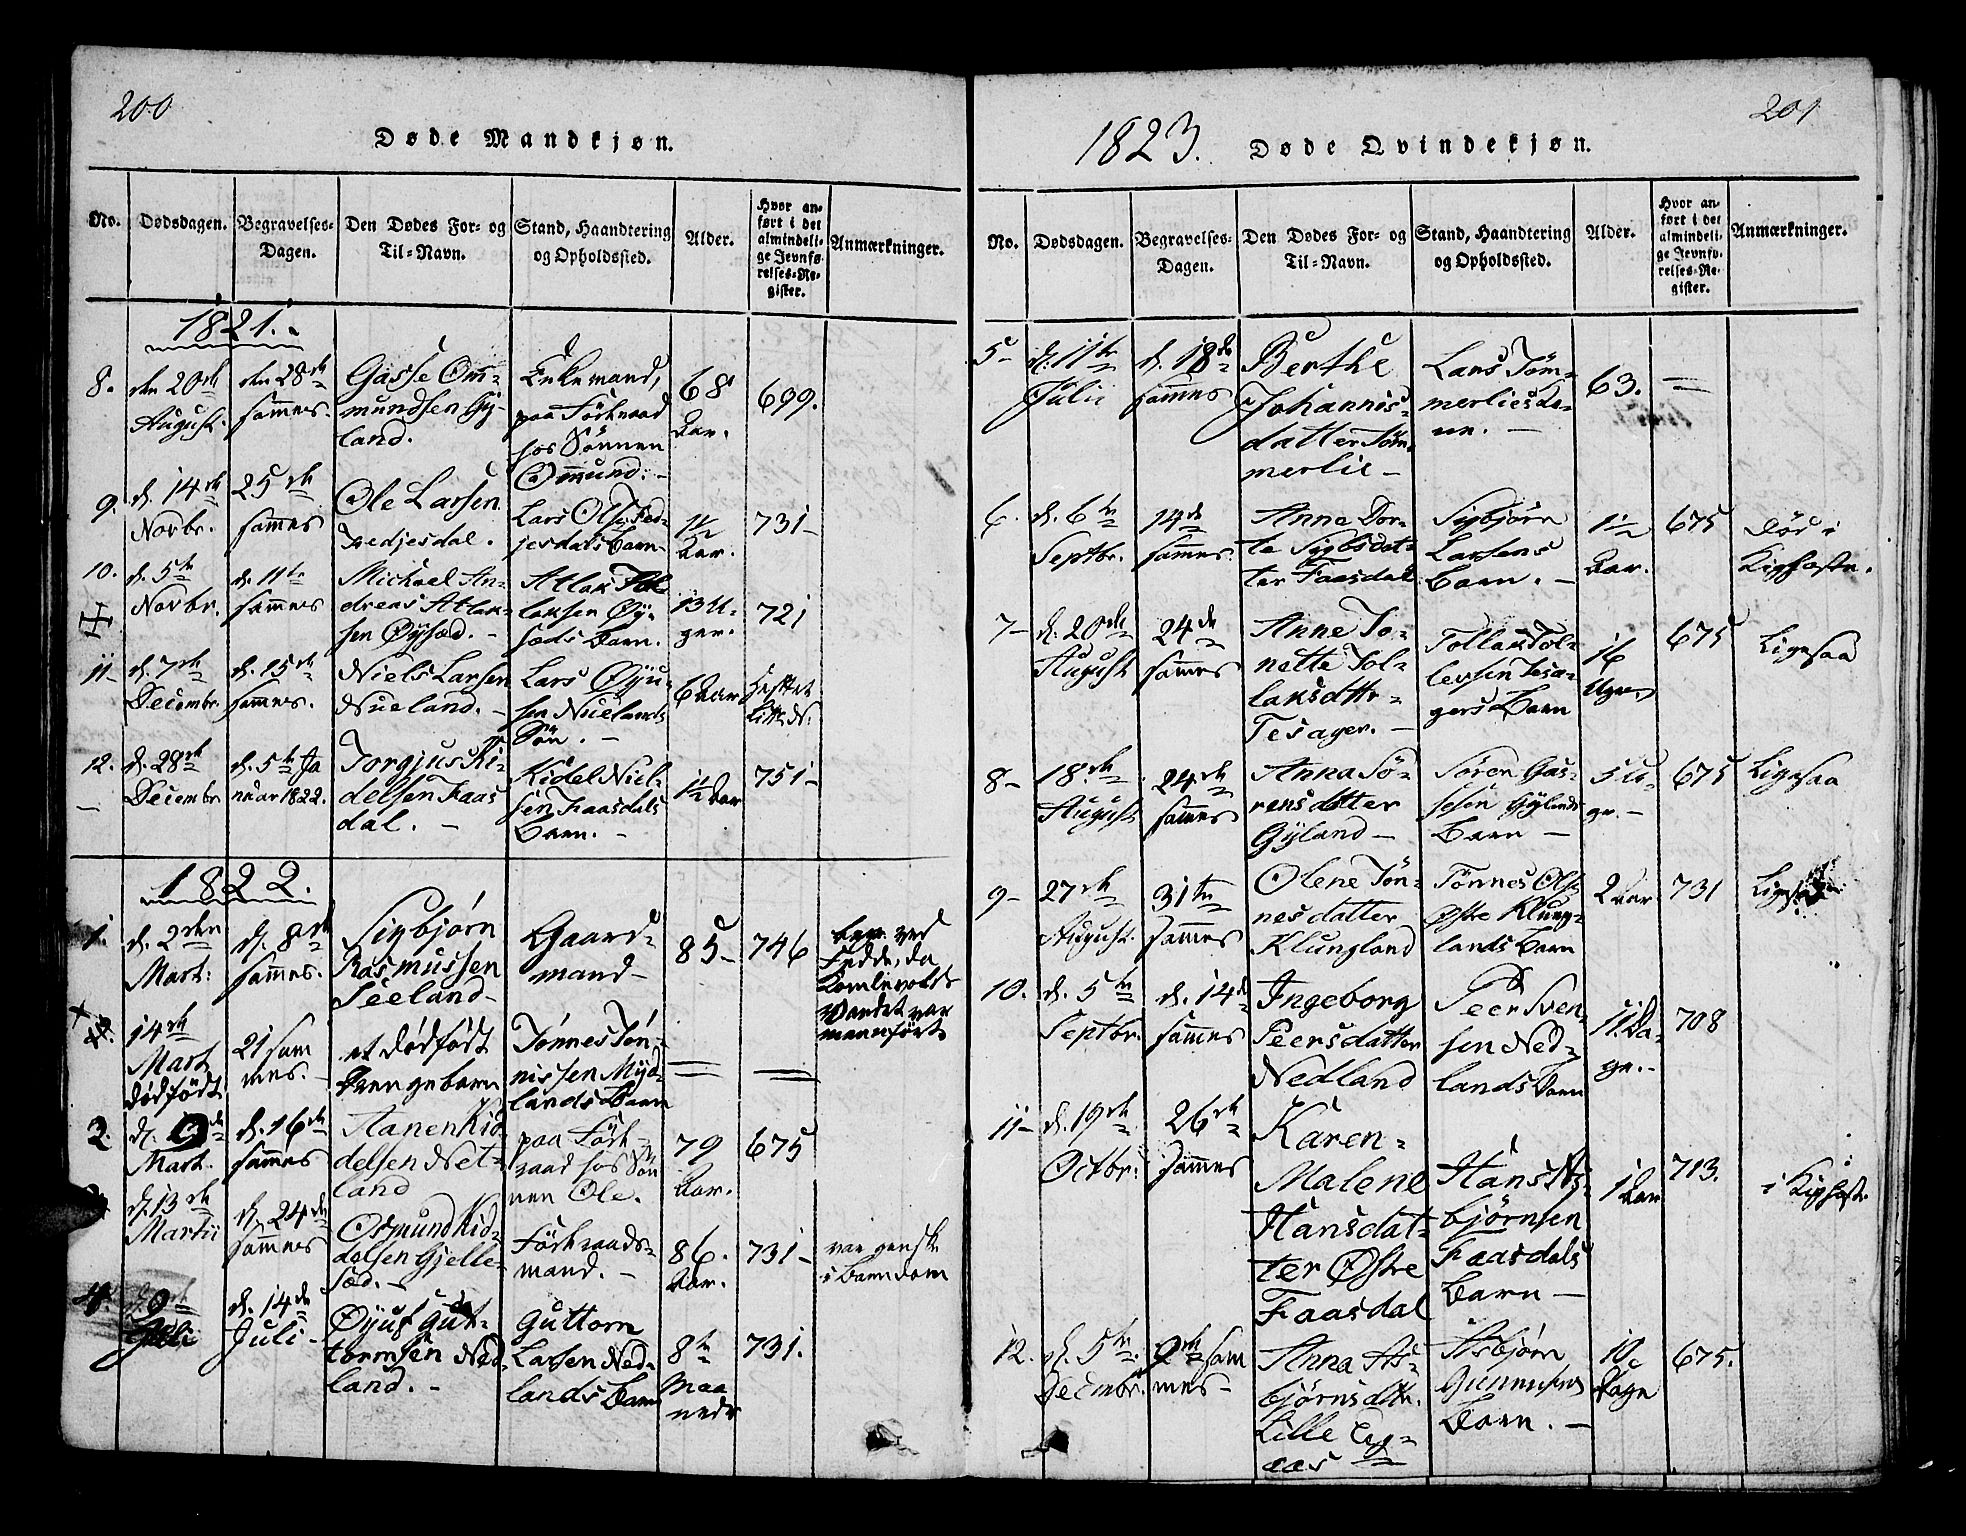 200
Døde Mandkjøn.
No.
Dødsdagen.
Begravelses-
Dagen.
Den Dødes For- og
Til-Navn.
Stand, Haandtering
og Opholdssted.
Alder.
Hvor an-
ført i det
almindeli-
ge Jevnfø-
relses-Re-
gister.
Anmærkninger.
1821.
8.
den 20de
August.
den 28de
sammes.
Gasse Om-
mundsen Gy-
land.
Enkemand,
paa Föderaad
hos Sönnen
Ommund. -
68
Aar.
699.
9.
d. 14de
Novbr.
25de
sammes
Ole Larsen
Tredjesdal.
Lars Ols. Tred-
jesdals Barn-
1½
Aar.
731-
10.
d. 5te
Novbr.
d. 11te
sammes
Michael An-
dreas Atlak-
sen Øysæd. -
Atlak
laksen Øy-
sæds Barn.
13 U-
ger.
721
11-
d. 7de
Decembr.
d. 15de
sammes.
Niels Larsen
Nueland. -
Lars Øyu-
sen Nuelands
Sön. -
6 Aar
12.
d. 28de
Decembr
d. 5te Ja
nuar 1822.
Torgjus Ki-
delsen Faas
dal. -
Kidel Niel-
sen Faasdals
Barn. -
1½ Aar
751-
1822.
1.
d. 2den
Mart.
d. 8de
sammes.
Sigbjörn
Rasmussen
Seeland-
Gaard-
mand-
85-
746
ved
Fedde, da
Komlevolds
Vandet var
menneført
14de
Mart
dødfödt
21 sam
mes. -
et dødfödt
Drengebarn
Tønnes Tøn-
nissen Myd-
lands Barn
2.
d. 9de
Mart.
d. 16de
sammes
Aanen Kid
delsen Net-
land
paa Föde-
raad hos Sön
nen Ole.
79
Aar.
675
d. 13de
Martii
d. 24de
sammes
Osmund Kid-
delsen Gjelle-
sæd. -
Föderaads-
mand. -
86.
Aar.
731-
var ganske
i Barndom
4.
Juli
d. 14de
Juli -
Øyuf Gut-
tormsen Ned-
land. -
Guttorm
Larsen Ned-
lands Barn
8te
Maa
neder
731.
201
1823.
Døde Qvindekjøn.
No.
Dødsdagen.
Begravelses-
Dagen.
Den Dødes For- og
Til-Navn.
Stand, Haandtering
og Opholdssted.
Alder.
Hvor an-
ført i det
almindeli-
ge Jevnfø-
relses-Re-
gister.
Anmærkninger.
5-
d. 11te
Julii
d. 18de
sammes
Berthe
Johannis-
datter Töm-
merlie -
Lars Töm-
merlies Ko-
ne. -
63.
-
6.
d. 6te
Septbr.
14de
sammes
Anne Dor-
te Sigbsdat-
ter Faasdal
Sigbjörn
Larsens
Barn. -
1½
Aar.
675
Död i
Kighoste.
7-
d. 20de
August
24de
sammes
Anne To-
nette Tol-
laksdttr.
Tesager. -
Tollak Tol-
levsen Tesa-
gers Barn
16
Uger
675
Ligesaa
8-
18de
August
24de
sammes
Anna Sö-
rensdatter
Gyland -
Sören Gas-
sesen Gylands
Barn -
5 U-
ger. -
675
Ligesaa
9-
27de
August.
31te
sammes
Olene Tön-
nesdatter
Klungland
Tönnes Ols.
Østre Klung-
lands Barn
2 Aar
731
Ligesaa
10.
d. 5te
Septbr.
d. 14de
sammes
Ingeborg
Peersdatter
Nedland
Peer Sven-
sen Ned-
lands Barn
11 Da-
ge. -
708
11-
d. 19de
Octbr.
26de
sammes
Karen-
Malene
Hansdat-
ter Østre
Faasdal
Hans As-
björnsen
Faasdals
Barn -
1 Aar
713.
i Kighoste
12.
d. 5te
Decembr.
9de sam
mes -
Anna As-
björnsdttr.
Lille Eeg-
aas
Asbjörn
Gunnufsens
Barn. -
10
Dage
675.